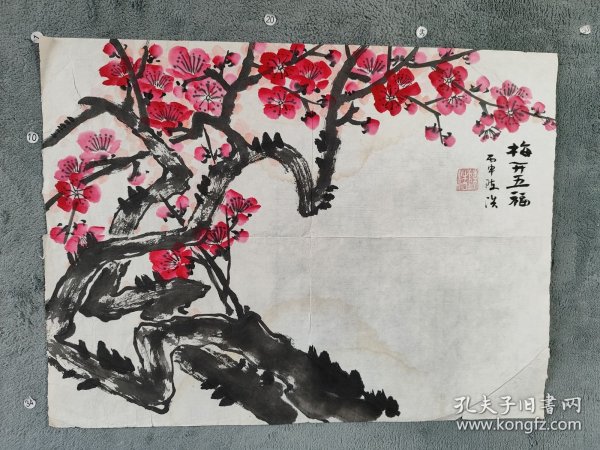 梅开五福
丙申
孔夫子旧书网
www.kongfz.com
20
10